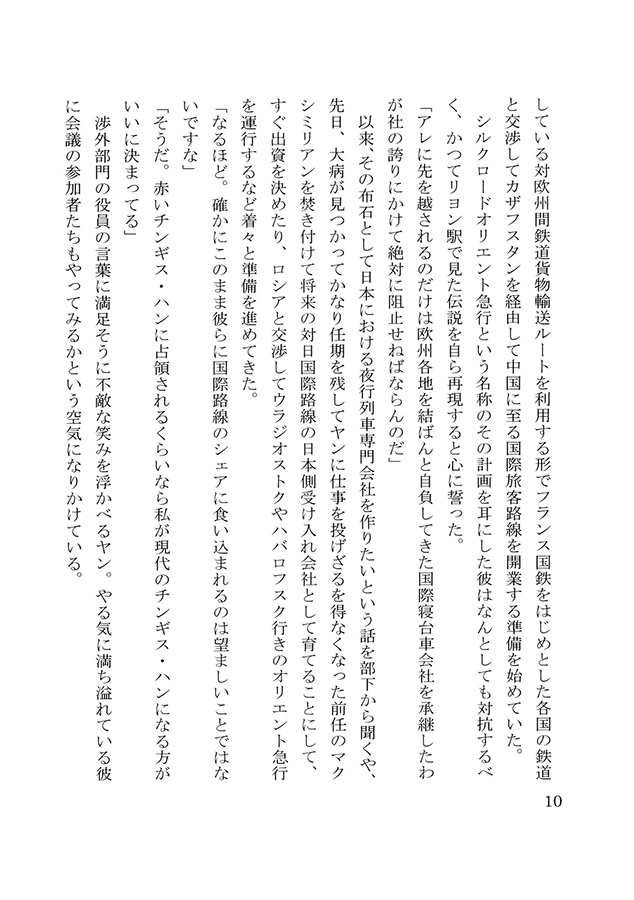 している対欧州間鉄道貨物輸送ルートを利用する形でフランス国鉄をはじめとした各国の鉄道
と交渉してカザフスタンを経由して中国に至る国際旅客路線を開業する準備を始めていた。
　シルクロードオリエント急行という名称のその計画を耳にした彼はなんとしても対抗するべ
く、かつてリヨン駅で見た伝説を自ら再現すると心に誓った。
「アレに先を越されるのだけは欧州各地を結ばんと自負してきた国際寝台車会社を承継したわ
が社の誇りにかけて絶対に阻止せねばならんのだ」
　以来、その布石として日本における夜行列車専門会社を作りたいという話を部下から聞くや、
先日、大病が見つかってかなり任期を残してヤンに仕事を投げざるを得なくなった前任のマク
シミリアンを焚き付けて将来の対日国際路線の日本側受け入れ会社として育てることにして、
すぐ出資を決めたり、ロシアと交渉してウラジオストクやハバロフスク行きのオリエント急行
を運行するなど着々と準備を進めてきた。
「なるほど。確かにこのまま彼らに国際路線のシェアに食い込まれるのは望ましいことではな
いですな」
「そうだ。赤いチンギス・ハンに占領されるくらいなら私が現代のチンギス・ハンになる方が
いいに決まってる」
　渉外部門の役員の言葉に満足そうに不敵な笑みを浮かべるヤン。やる気に満ち溢れている彼
に会議の参加者たちもやってみるかという空気になりかけている。
10